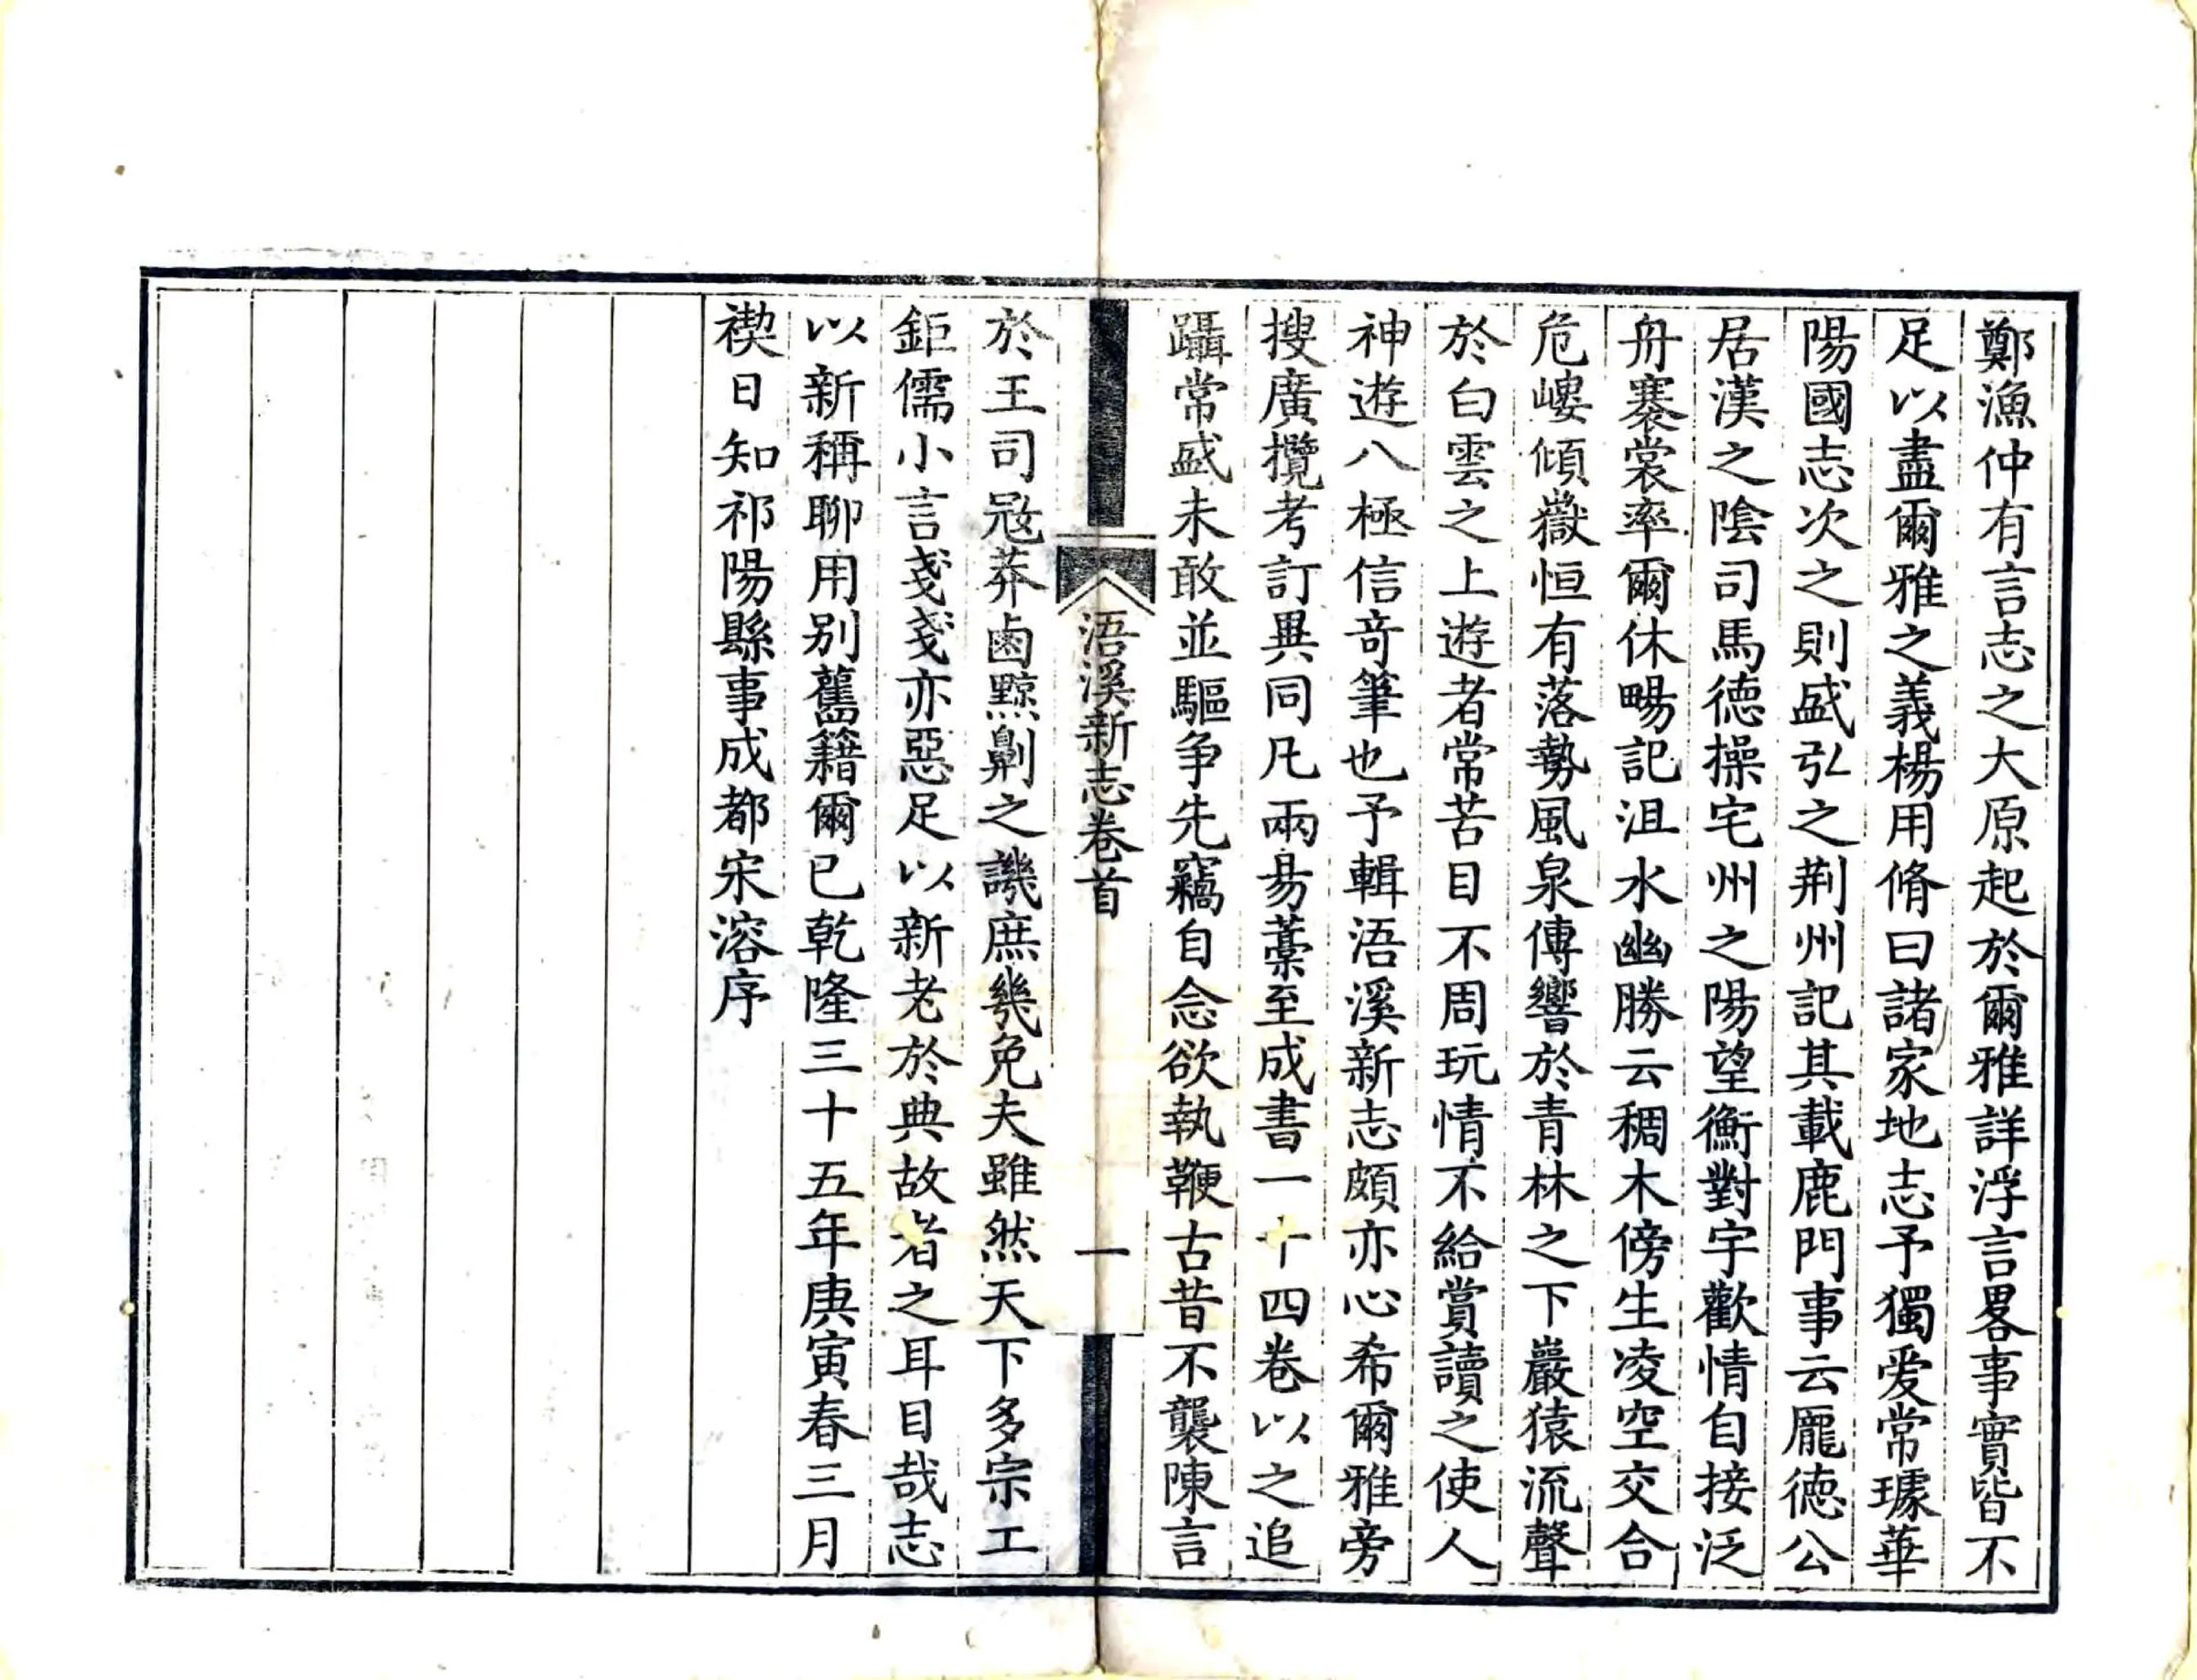 鄭漁仲有言志之大原起於爾雅詳浮言畧事實皆不
足以盡爾雅之義楊用脩曰諸家地志予獨爱常璩華
陽國志次之則盛弘之荆州記其載鹿門事云龐徳公
居漢之隂司馬德操宅州之陽望衡對宇歡情自接泛
舟褰裳率爾休暢記沮水幽勝云稠木傍生凌空交合
危嶁傾嶽恒有落勢風泉傳響於青林之下巖猿流聲
於白雲之上遊者常苦目不周玩情不給賞讀之使人
神遊八極信竒筆也予輯浯溪新志頗亦心希爾雅旁
搜廣攬考訂異同凡兩易藁至成書一十四卷以之追
躡常盛未敢並驅争先竊自念欲執鞭古昔不襲陳言
浯溪新志卷首
一
於王司宼莽鹵黥劓之譏庶幾免夫雖然天下多宗工
鉅儒小言戔戔亦惡足以新老於典故者之耳目哉志
以新稱聊用别舊籍爾已乾隆三十五年庚寅春三月
禊日知祁陽縣事成都宋溶序